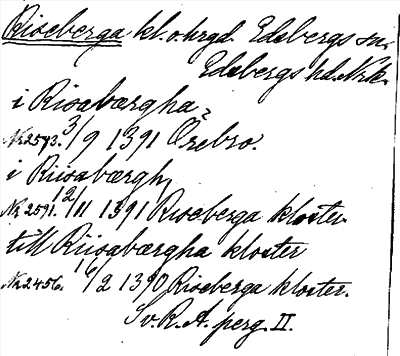 Riseberga kl. o. hrgd. Edsbergs sn.
Edsbergs hd. Nrk.
i Risabærgha
Nr 2573. 3/9 1391 Örebro.
i Riisabærgh
Nr 2591. 12/11 1391 Riseberga kloster
till Riisabærgha kloster
Nr 2456. 16/2 1390 Riseberga kloster.
Sv. R. A. perg. II.